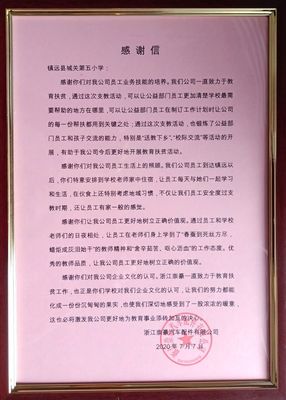 感谢信
镇远县城关第五小学：
感谢你们对我公司员工业务技能的培养。我们公司一直致力于教
育扶贫，通过这次支教活动，可以让公益部门员工更加清楚学校最需
要帮助的地方在哪里，可以让公益部门员工在制订工作计划时让公司
的每一份帮扶都用到关键之处；通过这次支教活动，也锻炼了公益部
门员工和孩子交流的能力，特别是“送教下乡”、“校际交流”等活动的开
展，有助于我公司今后更好地开展教育扶贫活动。
感谢你们对我公司员工生活上的照顾。我们公司员工到达镇远以
后，你们特意安排到学校老师家中住宿，让员工每天与她们一起学习
和生活，在伙食上还特别考虑地域习惯，不仅让我们员工安全度过支
教时期，还让员工有家一般的感觉。
感谢你们让我公司员工更好地树立正确价值观。通过员工和学校
老师们的日夜相处，让员工在老师们身上学到了“春蚕到死丝方尽，
蜡炬成灰泪始干”的教师精神和“含辛茹苦、呕心沥血”的工作态度。优
秀的教师品质，让我公司员工更好地树立正确的价值观。
感谢你们对我公司企业文化的认可。我们浙江 一直致力于教育扶
贫工作，也正是你们学校对我们企业文化的认可，让我们的努力都能
化成一份份沉甸甸的果实，也使我们深切地感受到了一股浓浓的暖意，
这也必将激发我公司更好地为教育事业添砖加瓦的决心。
浙江 汽车配件有限公司
2020年7月7日